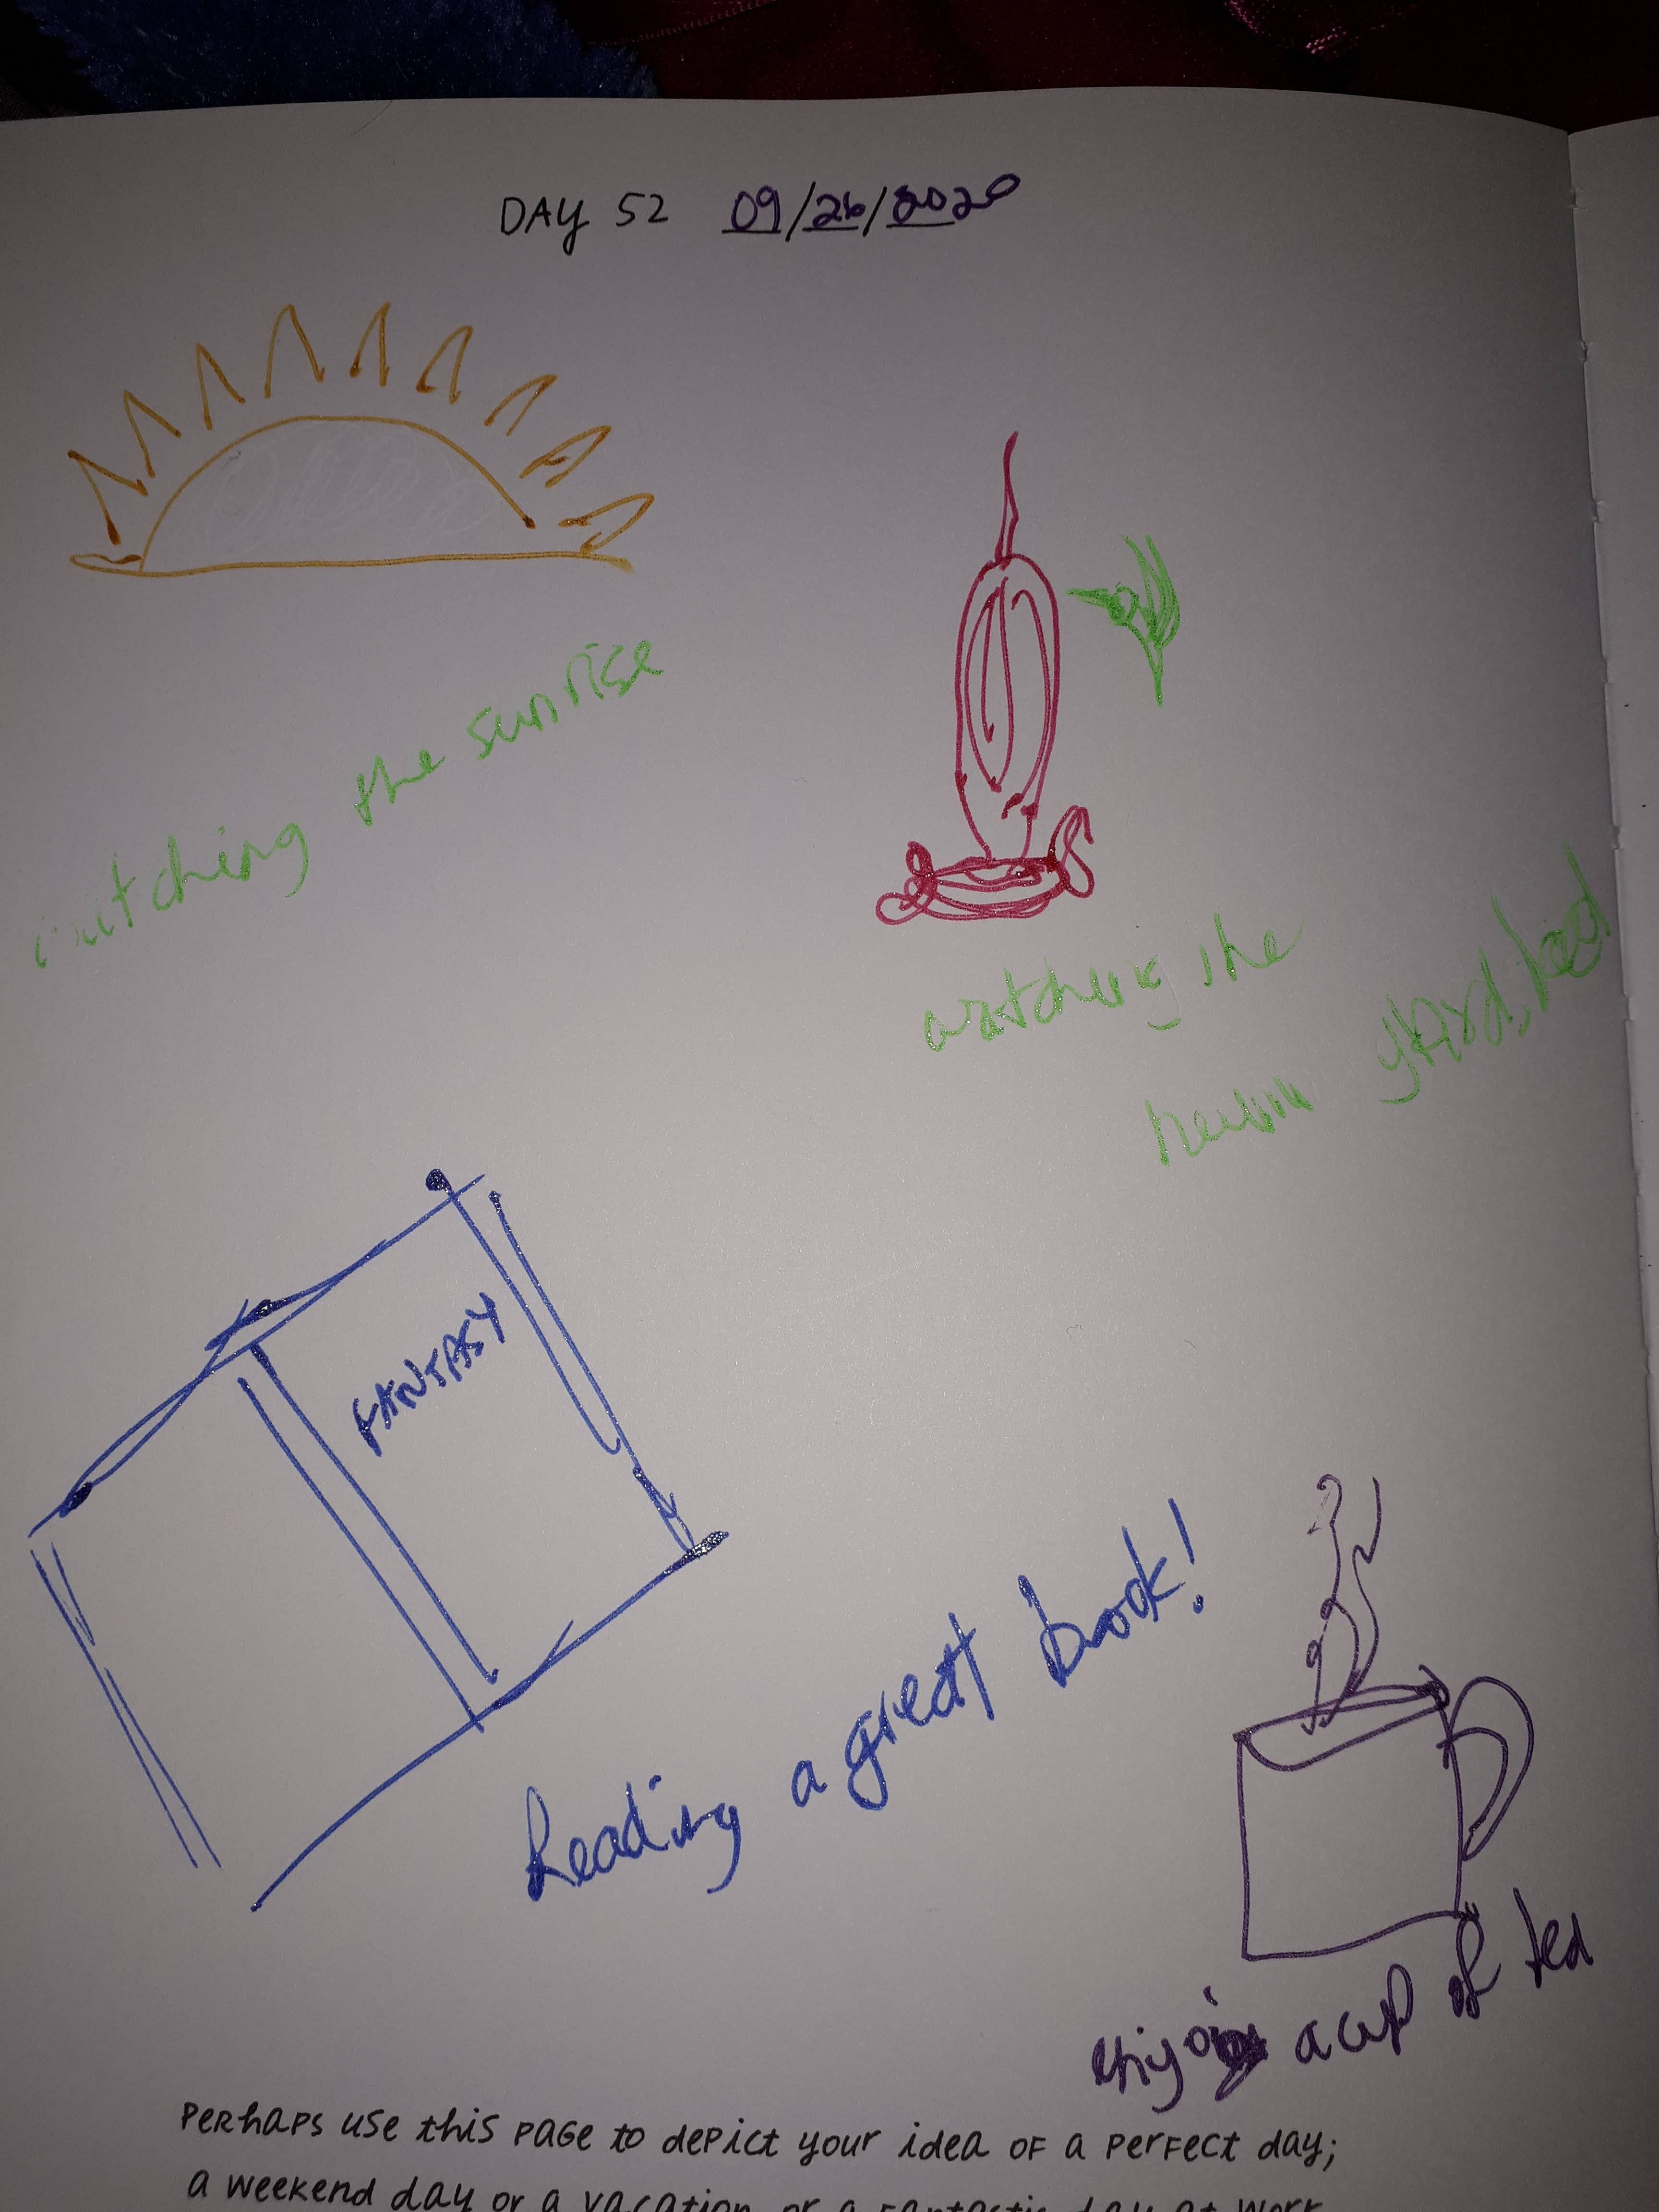 DAY 52 09/26/2020
watching the sunrise
watching the
yard,
FANTASY
Reading a great book!
a cup of tea
PERHAPS USE THIS PAGE TO DEPICT YOUR IDEA OF A PERFECT DAY;
A WEEKEND DAY OR A VACATION OR A FANTASTIC DAY AT WORK